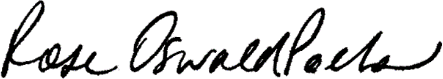 Rose Oswald Poels